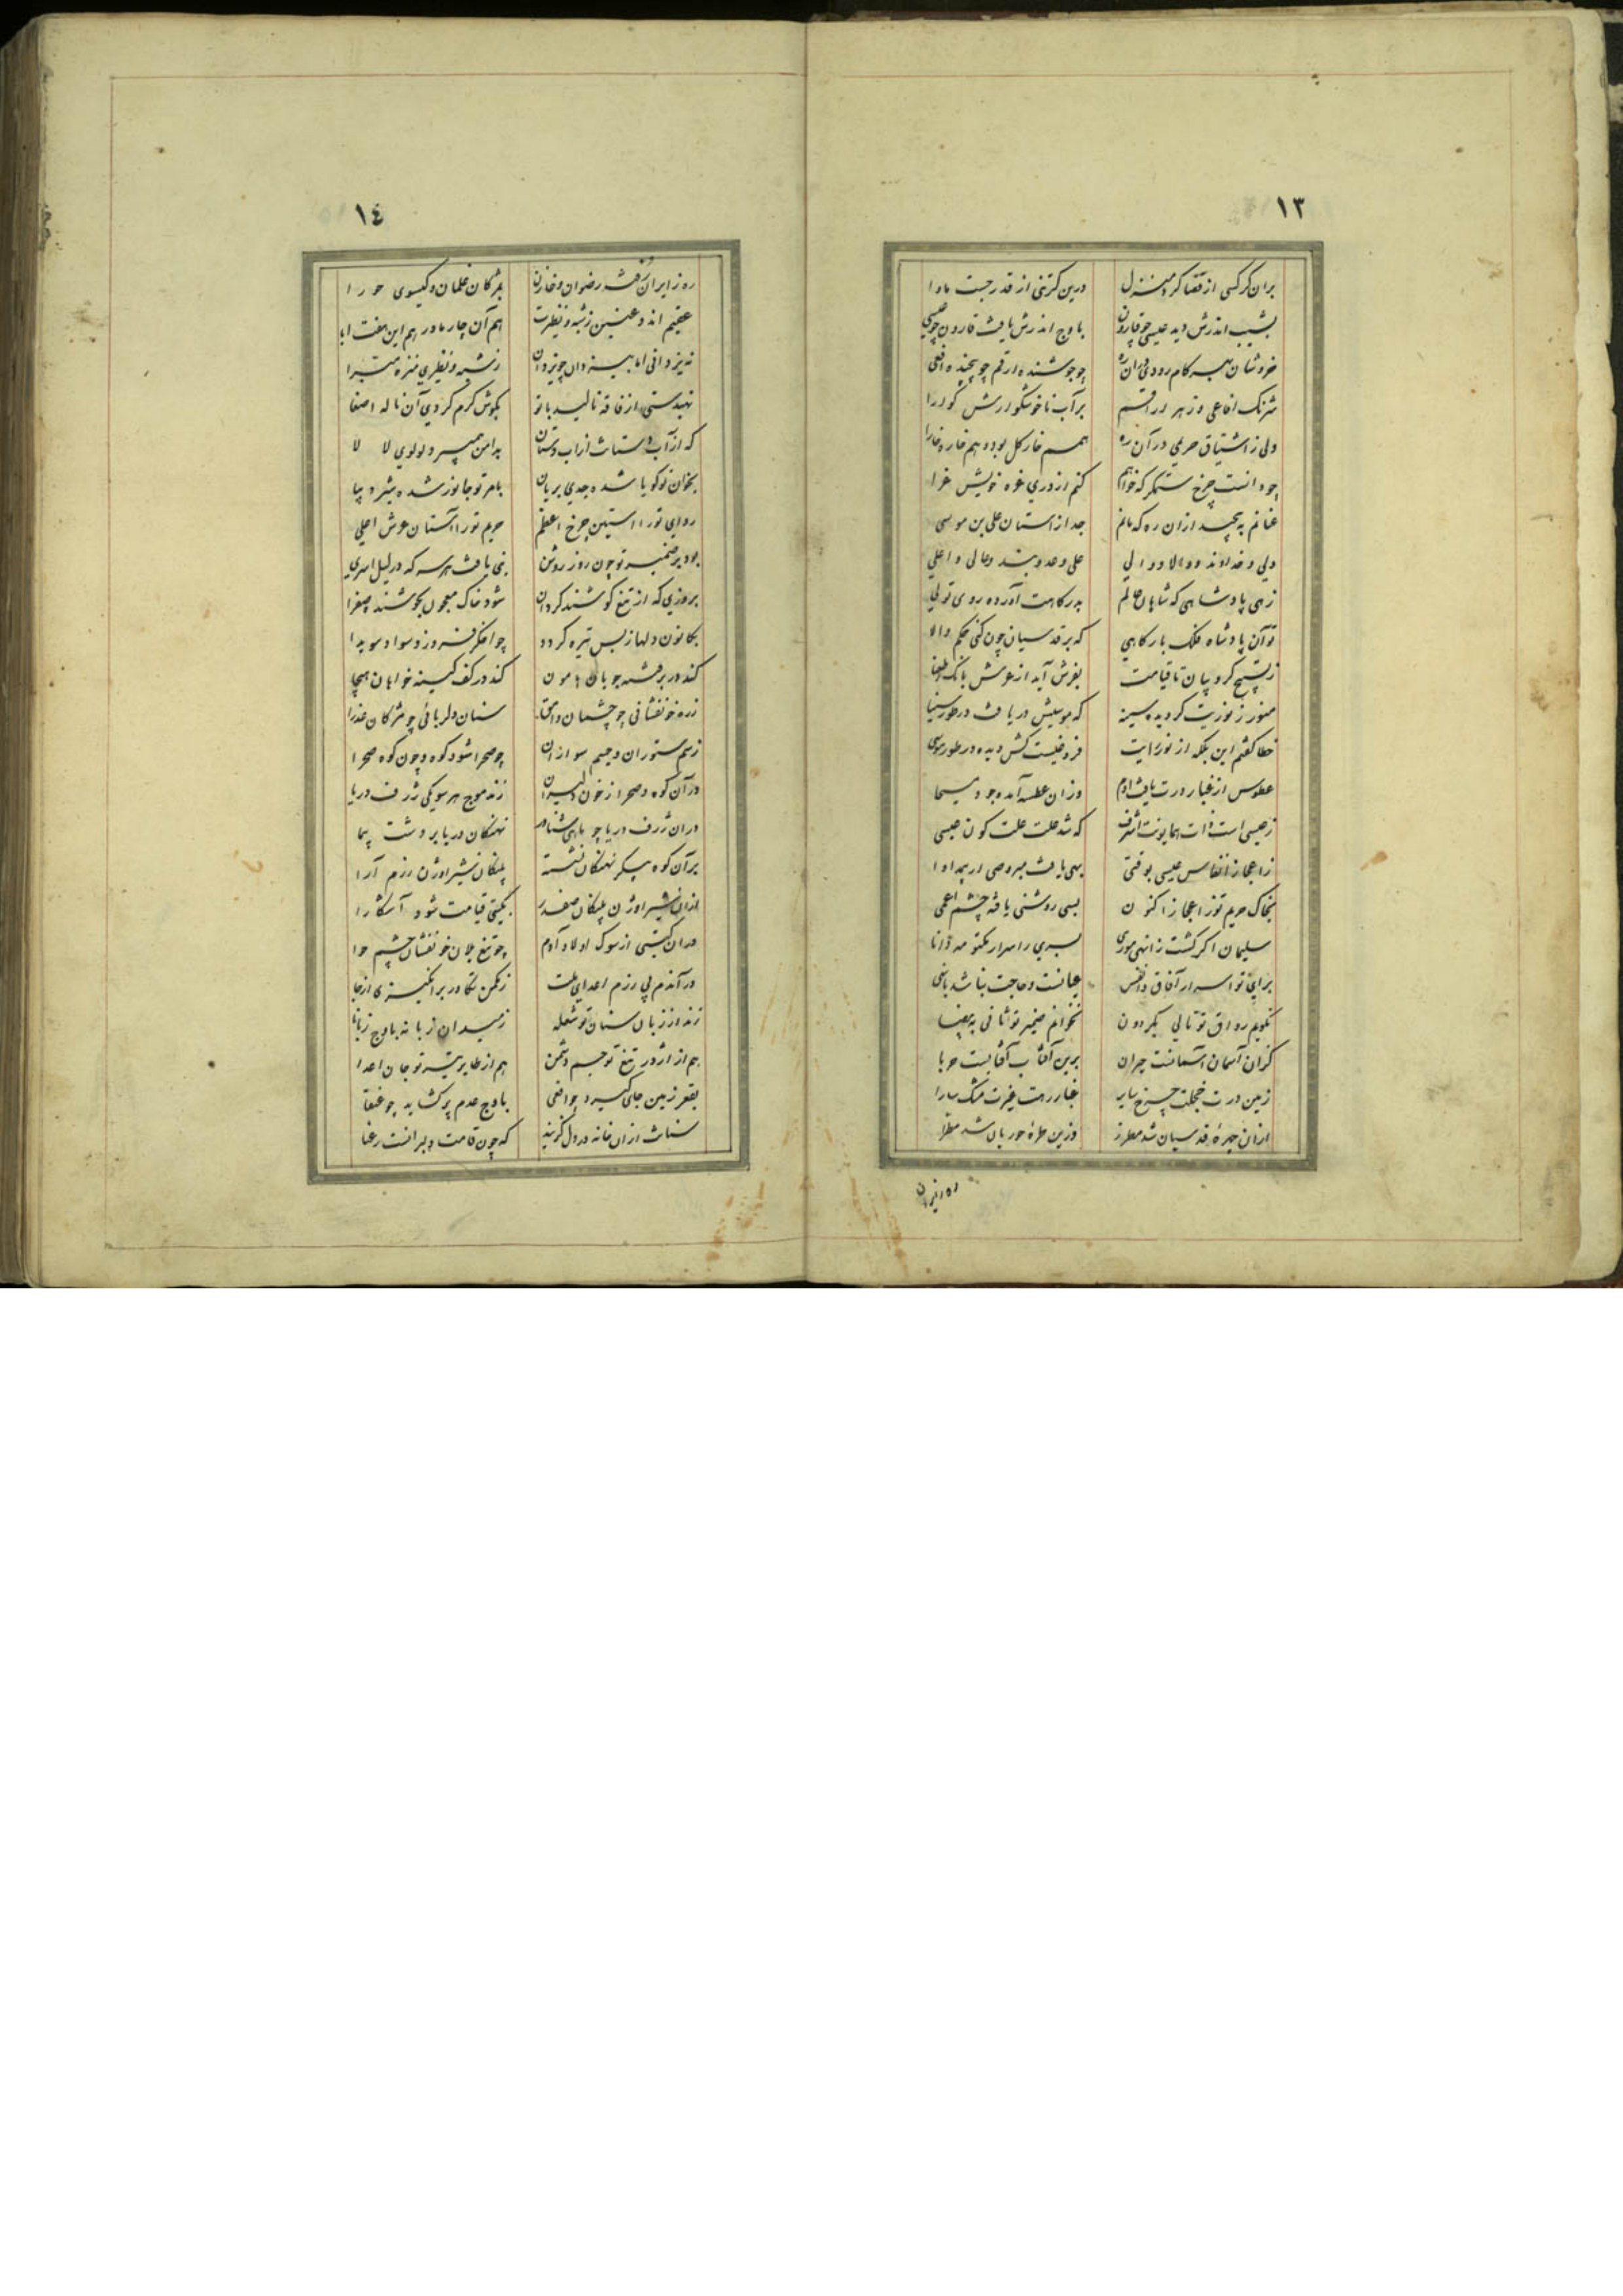 ١٣
بران کر کسی از قضا کرد منزل درین کرتنی از قدر جست ماوا
بشیب اندرش دید عیسی چو قارون باوج اندرش یافت قارون چو عیسی
خروشان بهر کام رودی در آن ره چو جوشنده ارقم چو پیچنده افعی
شرنک افاعی و زهر اراقم بر آب ناخوشکوارش کوارا
ولی ز اشتیاق حریمی در آن ره همم خار کل بود و هم خاره خارا
چو دانست چرخ ستمکر که خواهم کنم از دری غره خویش غرا
عنانم به پیچید ازان ره که مانم جدا از استان علی بن موسی
ولی و خداوند و والا و والی علی وحد و بند و عالی و اعلی
زهی پادشاهی که شاهان عالم بدرکاهت آورده روی تولی
تو آن پادشاه فلک بارکاهی که بر قدسیان چون کنی حکم والا
ز تسبیح کروبیان تا قیامت بفرش آید از عرش بانک اطعنا
منور ز نوریت کردیده سینه که موسیش دریافت در طور سینا
خطا کفتم این بلکه از نور رایت فروغیست کش دیده در طور موسی
عطوس از غبار درت یافت ادم وزان عطسه آمد وجود مسیحا
ز عیسی است ذات همایونت اشرف که شد علت علت کون عیسی
ز اعجاز انفاس عیسی بوقتی بهی یافت مبروصی ار بهر مداوا
بخاک حریم تو ز اعجاز اکنون بسی روشنی یافته چشم اعمی
سلیمان اگر کشت ز انهی موری بسری را اسرار مکتومه دانا
برای تو اسرار آفاق و انفس عیانست و حاجت نباشد بانهی
نکویم رواق تو تالی بکردون نخوانم ضمیر تو ثانی به بیضا
کزان آسمان آسمانست حیران برین آفتاب آفتابست حربا
زمین درت خجلت چرخ سایر غبار رهت غیرت مشک سارا
ازان چهرهٔ قدسیان شد مطرز وزین طرهٔ حوریان شد مطرا
ره زایران
١٤
ره زایران رفته رضوان و خازن بمژکان غلمان و کیسوی حورا
عقیم اند و عنین ز شبه و نظیرت هم آن چار مادر هم این هفت ابا
نه یزدانی اما به یزدان چو یزدان ز شبه و نظیری منزه مبرا
تهیدستی از فاقه نالید با تو بکوش کرم کردی آن ناله اصغا
که از آب دستت از آب دستان بدامن همی برد لولوی لالا
بخوان تو کویا شده جدی بریان بامر تو جانور شده شیر دیبا
ردای تو را آستین چرخ اعظم حریم تو را آستان عرش اعلی
بود بر ضمیر تو چون روز روشن نبی یافت هر سر که در لیل اسری
بروزی که از تیغ کوشند کردان شود خاک معجون بجوشند صفرا
بکانون دلها ز بس تیره کردد چو اخکر فروزد سواد سویدا
کند در برفتنه جویان هامون کند در کف کینه خواهان هیجا
زره خونفشانی چو چشمان وامق سنان دلربائی چو مژکان عذرا
ز سم ستوران و جسم سواران چو صحرا شود کوه و چون کوه صحرا
در آن کوه و صحرا ز خون دلیران زند موج هر سو یکی ژرف دریا
دران ژرف دریا چو ماهی شناور نهنکان دریا بر و دشت پیما
بر آن کوه پیکر نهنکان نشسته پلنکان شیر اوژن رزم آرا
ازان شیر اوژن پلنکان صفدر بکیتی قیامت شود آشکارا
دران کیتی از سوک اولاد آدم چو تیغ یلان خونفشان چشم حوا
در آندم پی رزم اعدای ملت ز مکمن تکاور بر انکیزی از جا
زند از زبان سنان تو شعله ز میدان زبانه باوج زبانا
هم از اژدر تیغ تو جسم دشمن هم از طایر تیر تو جان اعدا
بقعر زمین جای کیرد چو افعی باوج عدم پر کشاید چو عنقا
سنانت ازان خانه در دل کزیند که چون قامت دلبرانست رعنا